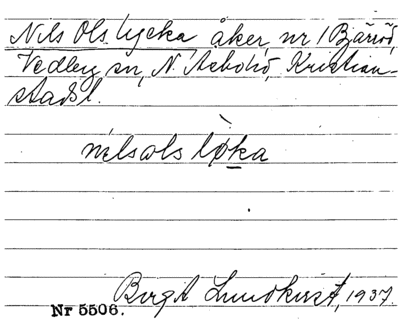 Nils Ols lycka åker, nr 1 Bjäröd,
Vedby sn, N. Åsbo hd, Kristian-
stads l.
nilsols løka
Birgit Lundkvist, 1937.
Nr 5506.